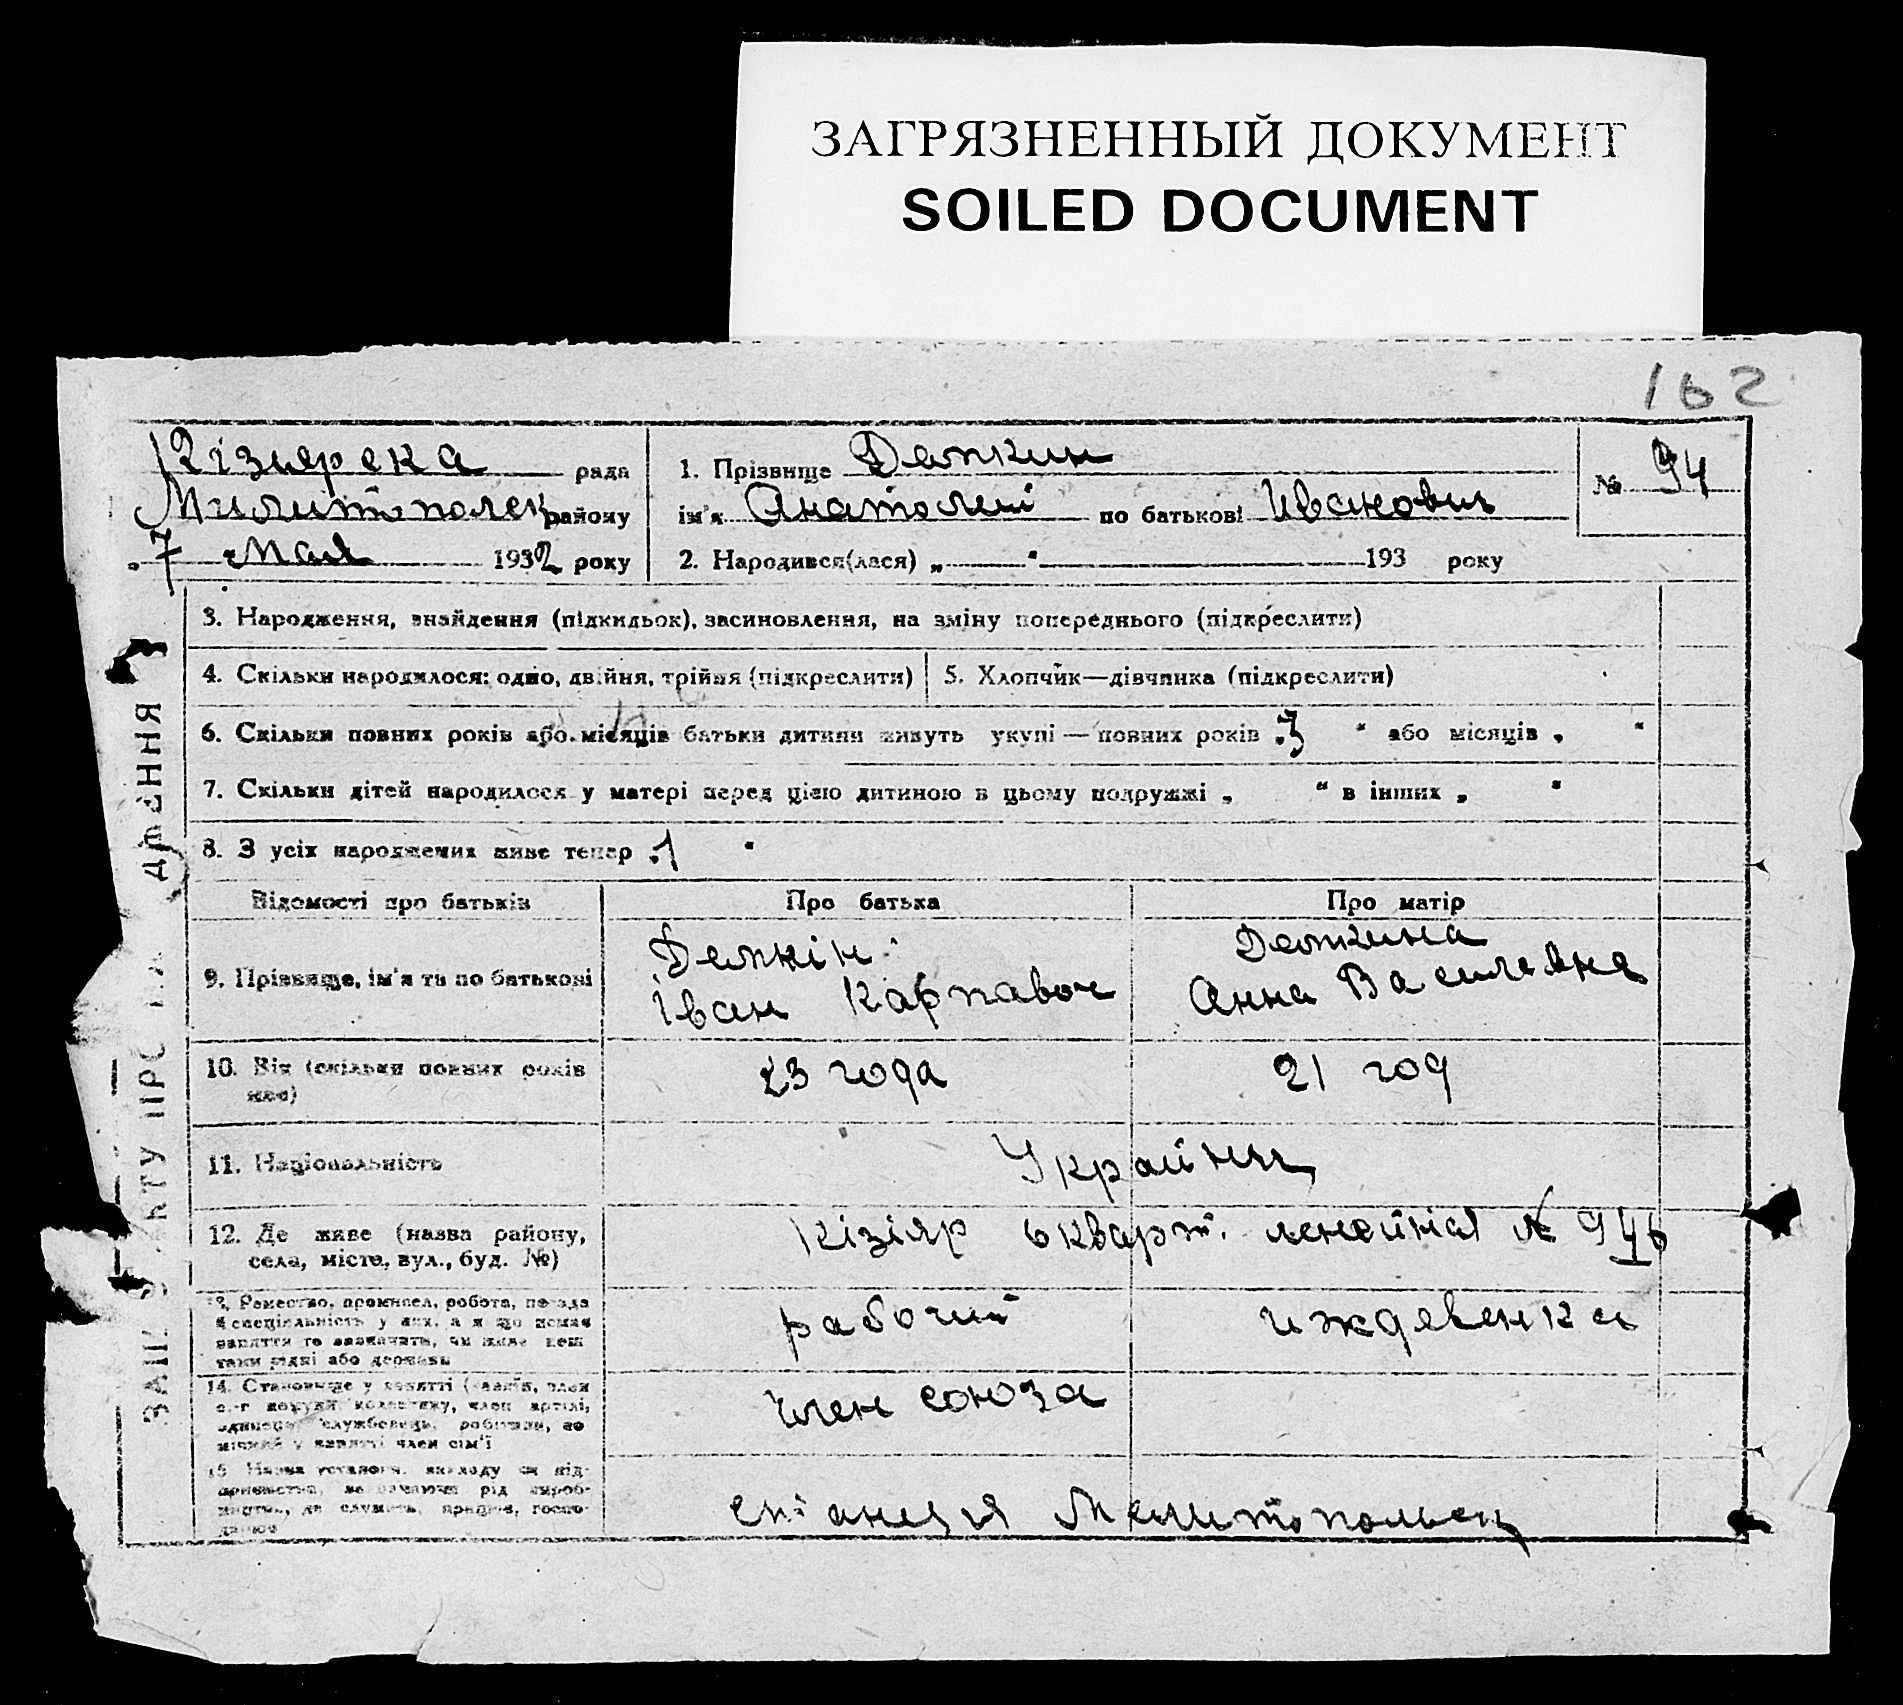 ЗАГРЯЗНЕННЫЙ ДОКУМЕНТ
SOILED DOCUMENT
162
Кізиярска рада
Милитополск району
7 Мая 1932 року
1. Прізвище Депкин
ім'я Анатолиі по батькові Иванович
№ 94
2. Народився(лася) „ “ 193 року
3. Народження, знайдення (підкидьок), засиновлення, на зміну попереднього (підкреслити)
4. Скільки народилося: одно, двійня, трійня (підкреслити)
5. Хлопчик—дівчинка (підкреслити)
6. Скільки повних років або місяців батьки дитини живуть укупі — повних років „3 “ або місяців „ “
7. Скільки дітей народилося у матері перед цією дитиною в цьому подружжі „ “ в інших „ “
8. З усіх народжених живе тепер „1 “
Відомості про батьків
Про батька
Про матір
9. Прізвище, ім'я та по батькові
Депкін
Іван Карпавоч
Депкина
Анна Василавна
10. Вік (скільки повних років має)
23 года
21 год
11. Національність
Украйнц
12. Де живе (назва району,
села, міста, вул., буд. №)
Кізіяр 6 кварт. ленейная № 946
13. Ремество, промисел, робота, посада
й спеціальність у них, а якщо немає
заняття то зазначить, чи живе кош
тами рідні або держави
рабочий
иждевенка
14. Становище у занятті
член союза
станция Мелитопольск
ЗАПИС АКТУ ПРО НАРОДЖЕННЯ